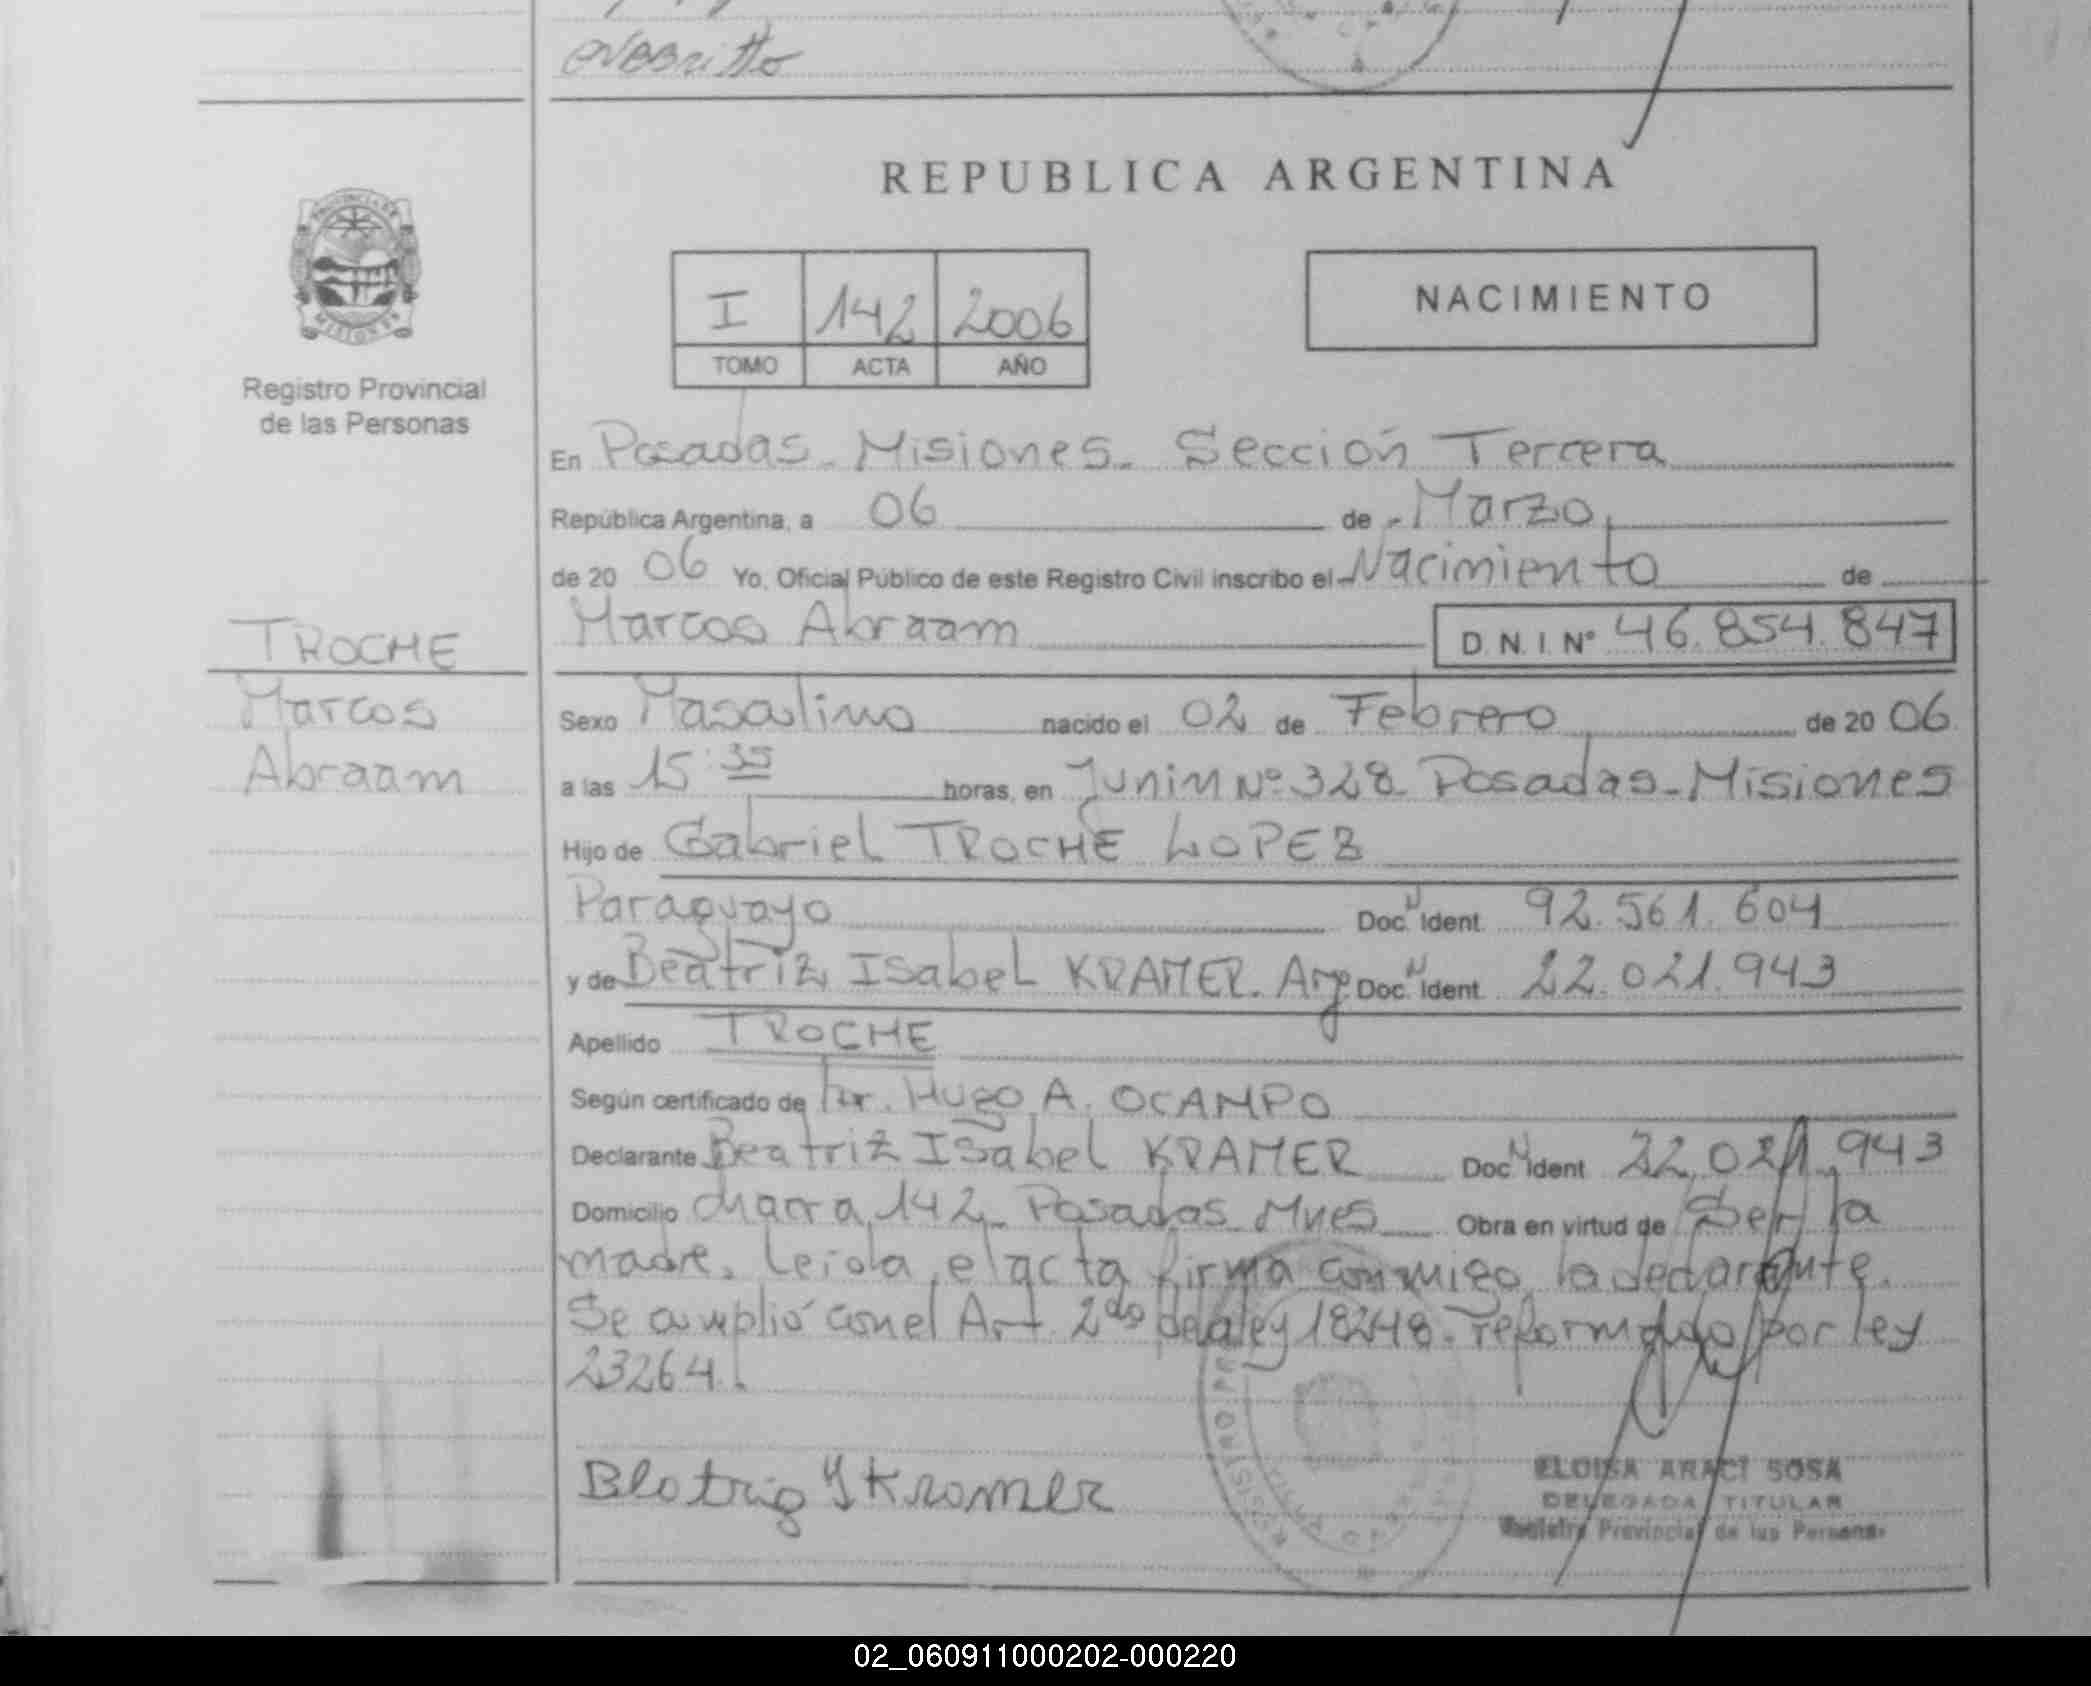 REPUBLICA ARGENTINA
PROVINCIA DE
MISIONES
Registro Provincial
de las Personas
I 142 2006
TOMO ACTA AÑO
NACIMIENTO
En Posadas - Misiones - Sección Tercera
República Argentina, a 06 de Marzo
de 20 06 Yo, Oficial Público de este Registro Civil inscribo el Nacimiento de
TROCHE
Marcos Abraam D.N.I. Nº 46.854.847
Marcos
Abraam
Sexo Masculino nacido el 02 de Febrero de 20 06
a las 15:35 horas, en Junin Nº 328 Posadas - Misiones
Hijo de Gabriel TROCHE LOPEZ
Paraguayo Doc. Ident. 92.561.604
y de Beatriz Isabel KRAMER. Arg Doc. Ident. 22.021.943
Apellido TROCHE
Según certificado de Dr. Hugo A. OCAMPO
Declarante Beatriz Isabel KRAMER Doc. Ident 22.021.943
Domicilio chacra 142 - Posadas Mnes Obra en virtud de Ser la
madre. Leida el acta firma conmigo la declarante.
Se cumplió con el Art. 2do de la ley 18248 - reformado por ley
23264.
Beatriz Y Kramer
ELOISA ARACI SOSA
DELEGADA TITULAR
Registro Provincial de las Personas
02_060911000202-000220